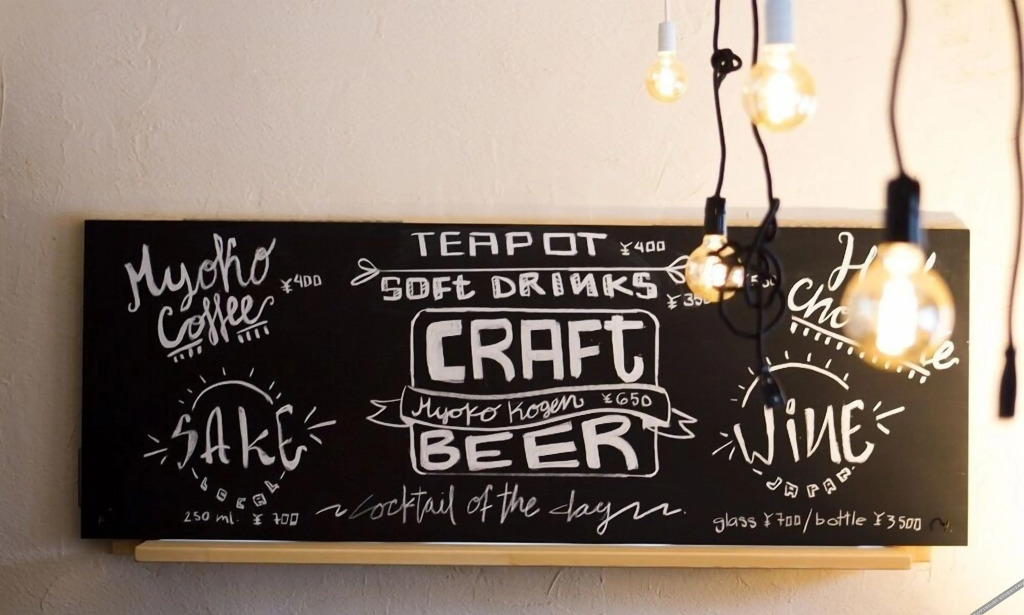 Myoko
Coffee
¥400
TEAPOT ¥400
SOFt DRINKS
CRAFt
Myoko Kogen ¥650
BEER
cocktail of the day
SAKE
LOCAL
250 ml. ¥700
WiNE
JAPAN
glass ¥700/bottle ¥3500